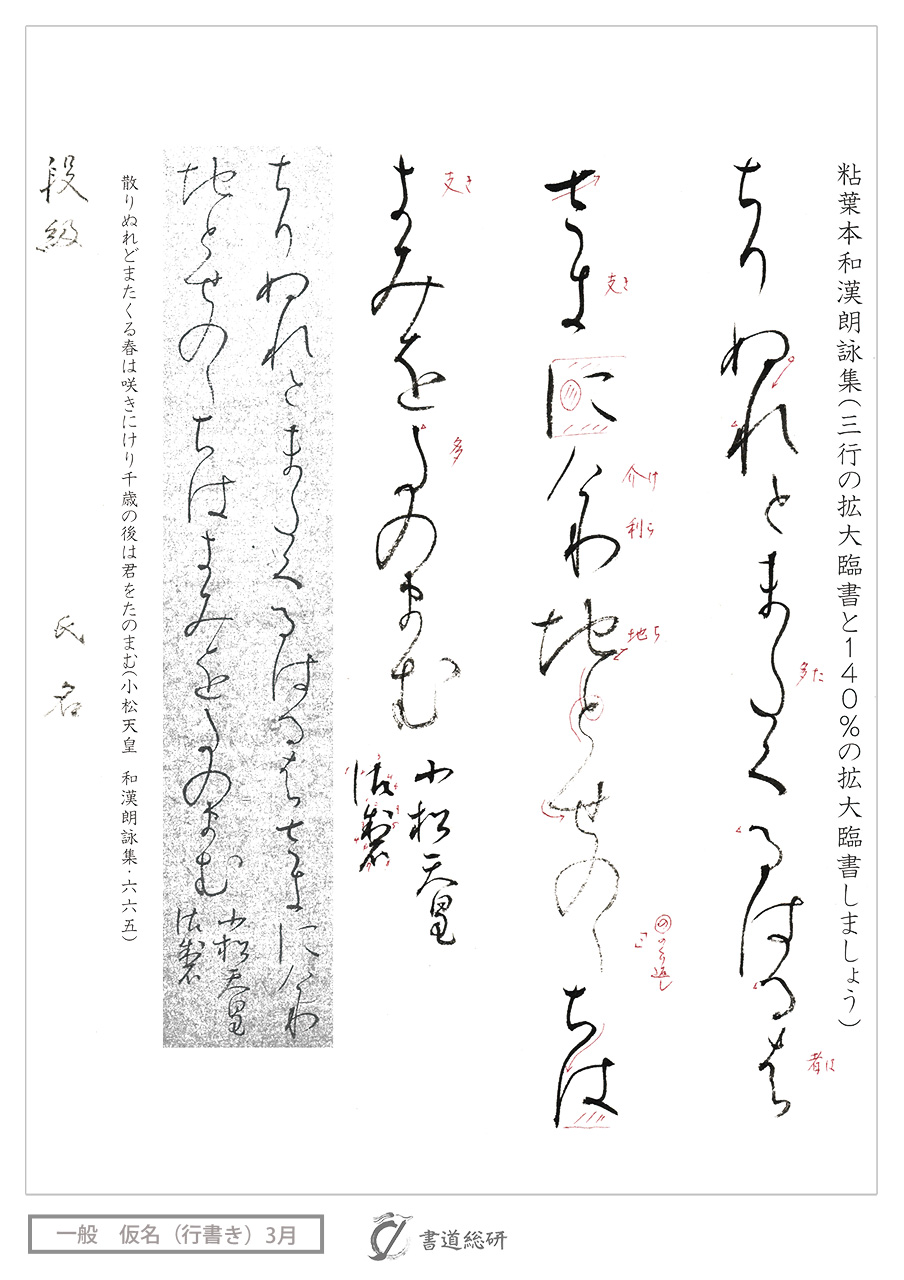 粘葉本和漢朗詠集(三行の拡大臨書と140%の拡大臨書しましょう)
ちりぬれとま多くるはる者
多た
者は
さ支に介利地とせのゝちは
支き
介け
利り
地ち
のくり返し
支みを多のまむ
支き
多
小松天皇
御製
ちりぬれとま多くるはる者さ支に介利
地とせのゝちは支みを多のまむ
小松天皇
御製
散りぬれどまたくる春は咲きにけり千歳の後は君をたのまむ(小松天皇　和漢朗詠集・六六五)
段級　氏名
一般　仮名（行書き）3月
書道総研